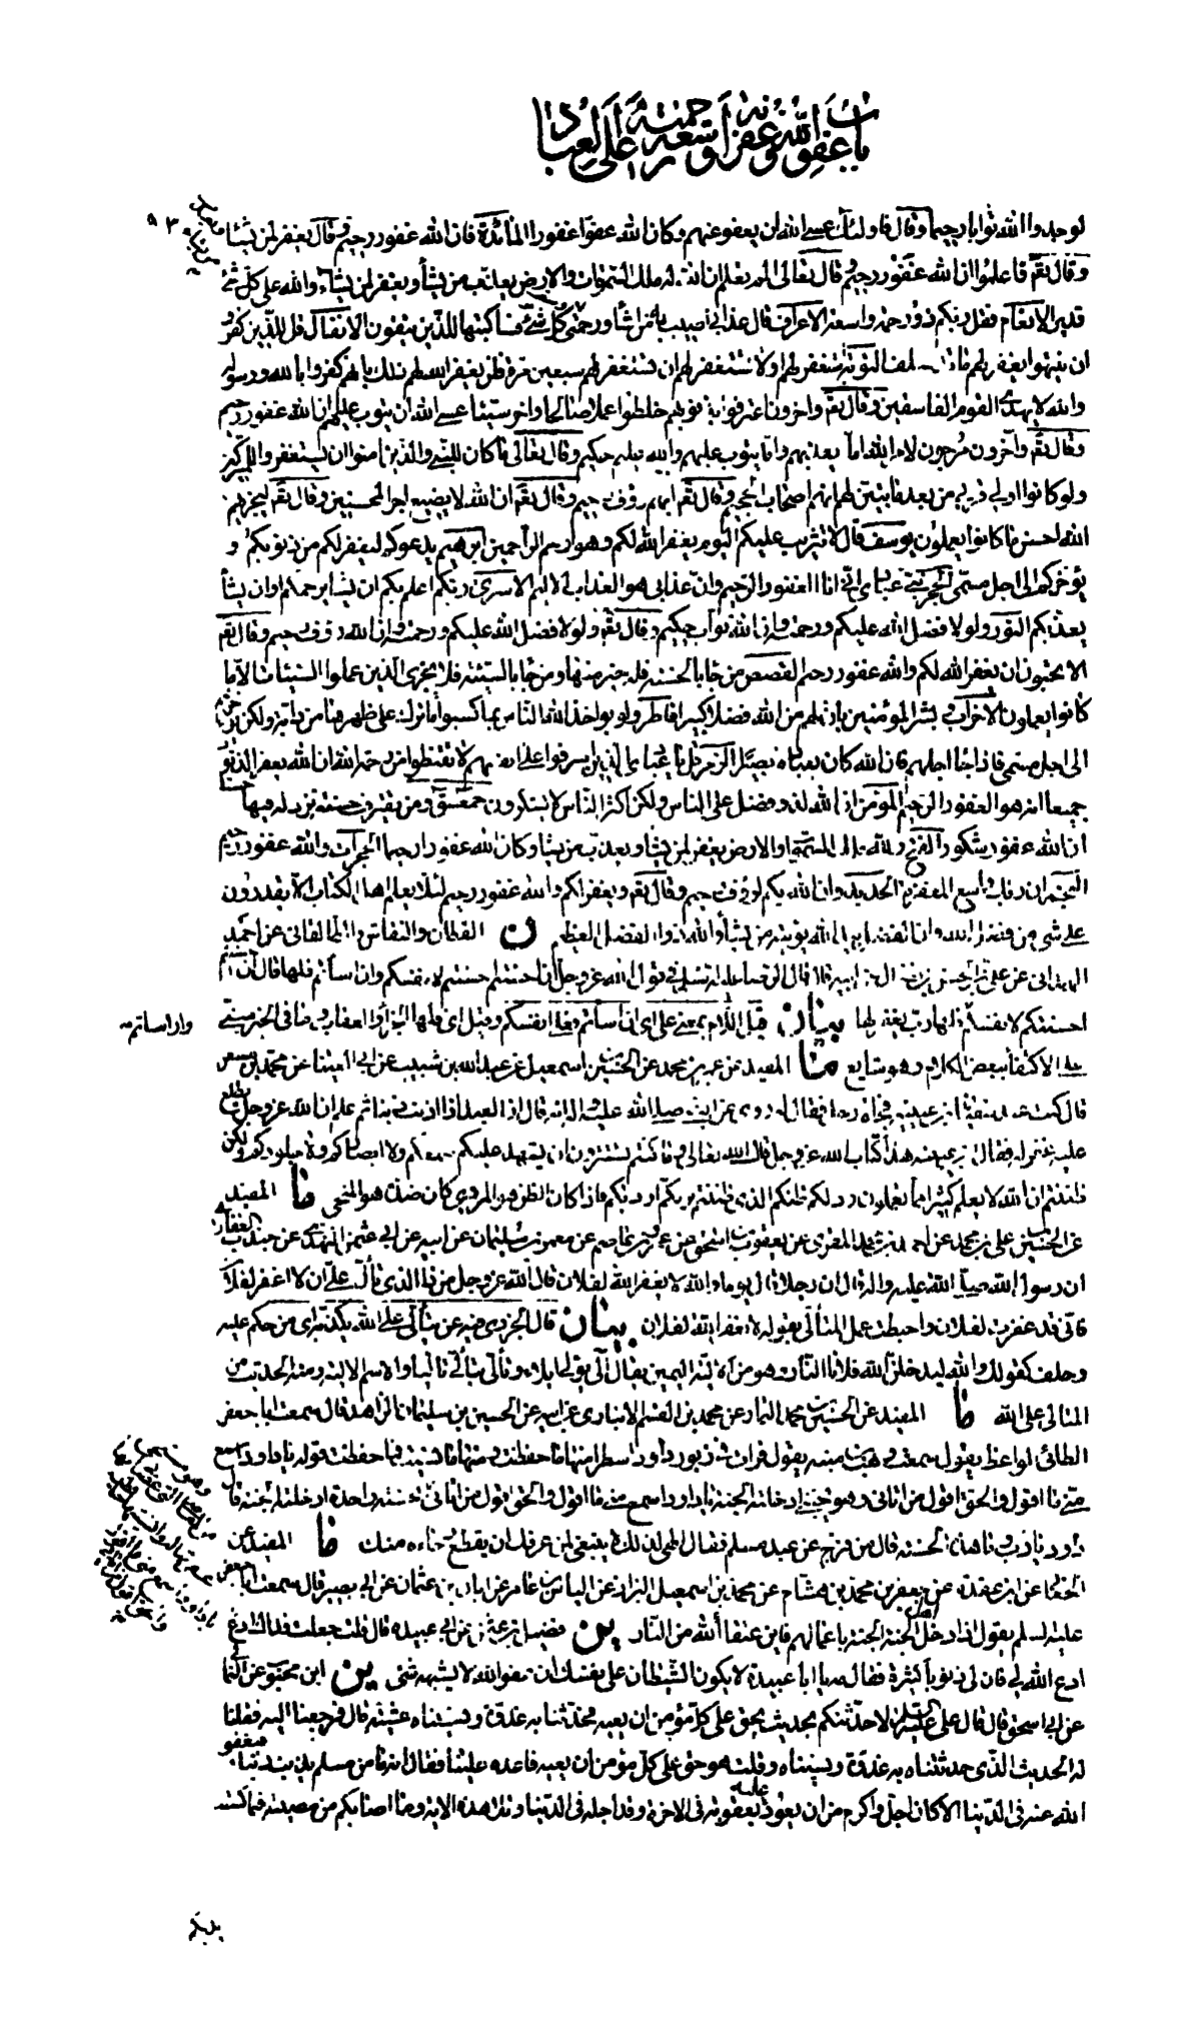 باب عفو الله وغفرانه وسعة رحمته على العباد
لوجدوا الله توابا رحيما وقال فاولئك عسى الله ان يعفو عنهم وكان الله عفوا غفورا المائدة فان الله غفور رحيم وقال يغفر لمن يشاء
وقال تعالى فاعلموا ان الله غفور رحيم وقال تعالى الم تعلم ان الله له ملك السموات والارض يعذب من يشاء ويغفر لمن يشاء والله على كل شئ
قدير الانعام فقل ربكم ذو رحمة واسعة الاعراف قال عذابي اصيب به من اشاء ورحمتي وسعت كل شئ فساكتبها للذين يتقون الانفال قل للذين كفروا
ان ينتهوا يغفر لهم ما قد سلف التوبة استغفر لهم او لا تستغفر لهم ان تستغفر لهم سبعين مرة فلن يغفر الله لهم ذلك بانهم كفروا بالله ورسوله
والله لا يهدي القوم الفاسقين وقال تعالى واخرون اعترفوا بذنوبهم خلطوا عملا صالحا واخر سيئا عسى الله ان يتوب عليهم ان الله غفور رحيم
وقال تعالى وآخرون مرجون لامر الله اما يعذبهم واما يتوب عليهم والله عليم حكيم وقال تعالى ما كان للنبي والذين امنوا ان يستغفروا للمشركين
ولو كانوا اولي قربى من بعد ما تبين لهم انهم اصحاب الجحيم وقال تعالى انه بهم رؤف رحيم وقال تعالى ان الله لا يضيع اجر المحسنين وقال تعالى ليجزيهم
الله احسن ما كانوا يعملون يوسف قال لا تثريب عليكم اليوم يغفر الله لكم وهو ارحم الراحمين ابرهيم يدعوكم ليغفر لكم من ذنوبكم و
يؤخركم الى اجل مسمى الحجر نبئ عبادي اني انا الغفور الرحيم وان عذابي هو العذاب الاليم الاسرى ربكم اعلم بكم ان يشا يرحمكم وان يشأ
يعذبكم النور ولولا فضل الله عليكم ورحمته وان الله تواب حكيم وقال تعالى ولولا فضل الله عليكم ورحمته وان الله رؤف رحيم وقال تعالى
الا تحبون ان يغفر الله لكم والله غفور رحيم القصص من جاء بالحسنة فله خير منها ومن جاء بالسيئة فلا يجزى الذين عملوا السيئات الا ما
كانوا يعملون الاحزاب وبشر المؤمنين بان لهم من الله فضلا كبيرا فاطر ولو يؤاخذ الله الناس بما كسبوا ما ترك على ظهرها من دابة ولكن يؤخرهم
الى اجل مسمى فاذا جاء اجلهم فان الله كان بعباده بصيرا الزمر قل يا عبادي الذين اسرفوا على انفسهم لا تقنطوا من رحمة الله ان الله يغفر الذنوب
جميعا انه هو الغفور الرحيم المؤمن ان الله لذو فضل على الناس ولكن اكثر الناس لا يشكرون حمعسق ومن يقترف حسنة نزد له فيها حسنا
ان الله غفور شكور الفتح ولله ملك السموات والارض يغفر لمن يشاء ويعذب من يشاء وكان الله غفورا رحيما الحجرات والله غفور رحيم
النجم ان ربك واسع المغفرة الحديد وان الله بكم لرؤف رحيم وقال تعالى ويغفر لكم والله غفور رحيم لئلا يعلم اهل الكتاب الا يقدرون
على شئ من فضل الله وان الفضل بيد الله يؤتيه من يشاء والله ذو الفضل العظيم ن القطان والنقاش والطالقاني عن احمد
الهمداني عن علي بن الحسن بن فضال عن ابيه قال قال الرضا عليه السلام في قول الله عز وجل ان احسنتم احسنتم لانفسكم وان اسأتم فلها قال ان احسنتم
احسنتم لانفسكم فلها رب يغفر لها بيان قيل اللام بمعنى على اي ان اسأتم فعلى انفسكم وقيل اي فلها الجزاء والعقاب وما في الخبر مبني
وان اسأتم
على الاكتفاء ببعض الكلام وهو شايع ما المفيد عن عمر بن محمد عن الحسين بن اسمعيل عن عبد الله بن شبيب عن ابي العيناء عن محمد بن مسعر
قال كنت عند سفين بن عيينة فجاءه رجل فقال له روي عن النبي صلى الله عليه وآله انه قال ان العبد اذا اذنب ذنبا ثم علم ان الله عز وجل يطلع
عليه غفر له فقال ابن عيينة هذا كتاب الله عز وجل قال الله تعالى وما كنتم تستترون ان يشهد عليكم سمعكم ولا ابصاركم ولا جلودكم ولكن
ظننتم ان الله لا يعلم كثيرا مما تعملون وذلكم ظنكم الذي ظننتم بربكم ارديكم فاذا كان الظن هو المردي كان ضده هو المنجي ما المفيد
عن الحسين بن علي بن محمد عن احمد بن محمد المقري عن يعقوب بن اسحق عن عمر بن عاصم عن معمر بن سليمان عن ابيه عن ابي عثمن النهدي عن جندب الغفاري
ان رسول الله صلى الله عليه وآله قال ان رجلا قال يوما والله لا يغفر الله لفلان قال الله عز وجل من ذا الذي تألى علي ان لا اغفر لفلان
فاني قد غفرت لفلان واحبطت عمل المتألي بقوله لا يغفر الله لفلان بيان قال الجزري فيه من يتألى على الله يكذبه اي من حكم عليه
وحلف كقولك والله ليدخلن الله فلانا النار وهو من الالية اليمين يقال آلى يولي ايلاء وتألى يتألى تأليا والاسم الالية ومنه الحديث من
المتالي على الله ما المفيد عن الحسين بن محمد التمار عن محمد بن القسم الانباري عن ابيه عن الحسين بن سليمان الزاهد قال سمعت ابا جعفر
الطائي الواعظ يقول سمعت وهب بن منبه يقول قرات في زبور داود اسطرا منها ما حفظت ومنها ما نسيت فما حفظت قوله يا داود اسمع
مني ما اقول والحق اقول من اتاني وهو يحبني ادخلته الجنة يا داود اسمع مني ما اقول والحق اقول من اتاني بحسنة واحدة ادخلته الجنة قال
داود يا رب وما هذه الحسنة قال من فرج عن عبد مسلم فقال الهي لذلك لا ينبغي لمن عرفك ان يقطع رجاءه منك ما المفيد عن
الجعابي عن ابن عقدة عن جعفر بن محمد بن هشام عن محمد بن اسمعيل البزاز عن الياس بن عامر عن ابان بن عثمان عن ابي بصير قال سمعت ابا جعفر
عليه السلم يقول اذا دخل اهل الجنة الجنة باعمالهم فاين عتقاء الله من النار ين فضيل بن عثمن عن ابي عبيدة قال قلت جعلت فداك ادع
ادع الله لي فان لي ذنوبا كثيرة فقال مه يا ابا عبيدة لا يكون الشيطان على نفسك ان عفو الله لا يشبهه شئ ين ابن محبوب عن الثمالي
عن ابي اسحق قال قال علي عليه السلم لاحدثنكم بحديث يحق على كل مؤمن ان يعيه فحدثنا به غدوة ونسيناه عشية قال فرجعنا اليه فقلنا
له الحديث الذي حدثتناه به غدوة ونسيناه وقلت هو حق على كل مؤمن ان يعيه فاعده علينا فقال انه ما من مسلم يذنب ذنبا فيعفو
الله عنه في الدنيا الا كان اجل واكرم من ان يعود عليه بعقوبة في الاخرة وقد اجله في الدنيا وتلا هذه الاية وما اصابكم من مصيبة فبما كسبت